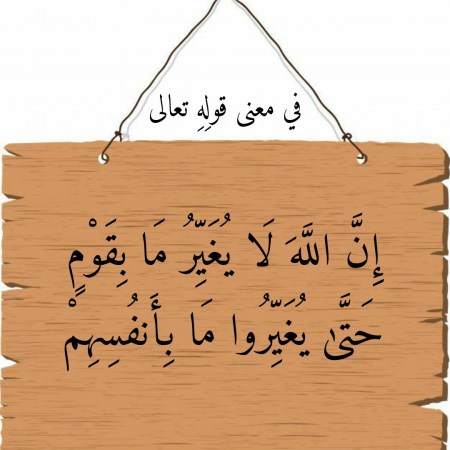 في معنى قولِهِ تعالى
إِنَّ اللَّهَ لَا يُغَيِّرُ مَا بِقَوْمٍ
حَتَّىٰ يُغَيِّرُوا مَا بِأَنفُسِهِمْ